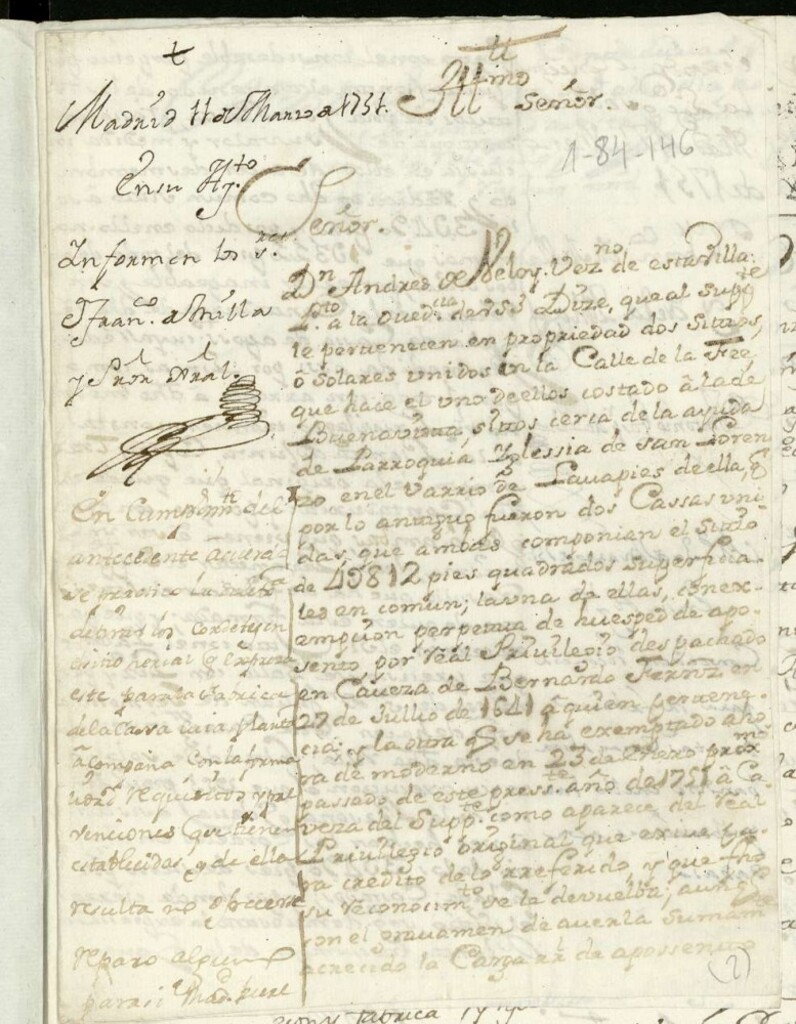 Illmo
Señor.
Madrid 11 de Marzo de 1751.
1-84-146
En su Ayto
Informen los sres
Franco. de
y Pror Gral.
Señor.
Dn Andrés de Veloy. Vezno. de esta Villa:
Pto â la Ovedcia de VSI Dize, que al suppte
le pertenecen en propriedad dos Sittios,
ô Solares unidos en la Calle de la Fee,
que hace el uno de ellos costado â la de
Buenavista, sitos cerca de la ayuda
de Parroquia, Yglessia de San Loren
zo en el Varrio de Lavapies de ella, q
por lo antiguo fueron dos Cassas uni
das, que ambas componian el Sittio
de 45812 pies quadrados superficia-
les en comun; la una de ellas, con ex-
empcion perpetua de huesped de apo-
sento por Real Privilegio despachado
en Caveza de Bernardo Fernz en
27 de Jullio de 1641 â quien pertene-
cia; y la otra q se hà exemptado aho
ra de moderno en 23 de Enero proxmo
passado de este presste. año de 1751 â Ca
veza del Suppte. como aparece del Real
Privillegio original que
ra credito de lo rreferido, y que fho
su reconocimto se le devuelba; aunq
con el gravamen de averla
crecido la Carga rl de apossento
En Cumplimto del
antecedente acuer-
do se practicó la
de tirar los cordeles en
el sitio herial q expresa
este para la fabrica
de la Cassa cuia planta
acompaña con la forma
requisitos y pre
venciones que tiene
establecidas y de ella
resulta no ofrecerse
reparo alguno
para
(2)
fabrica